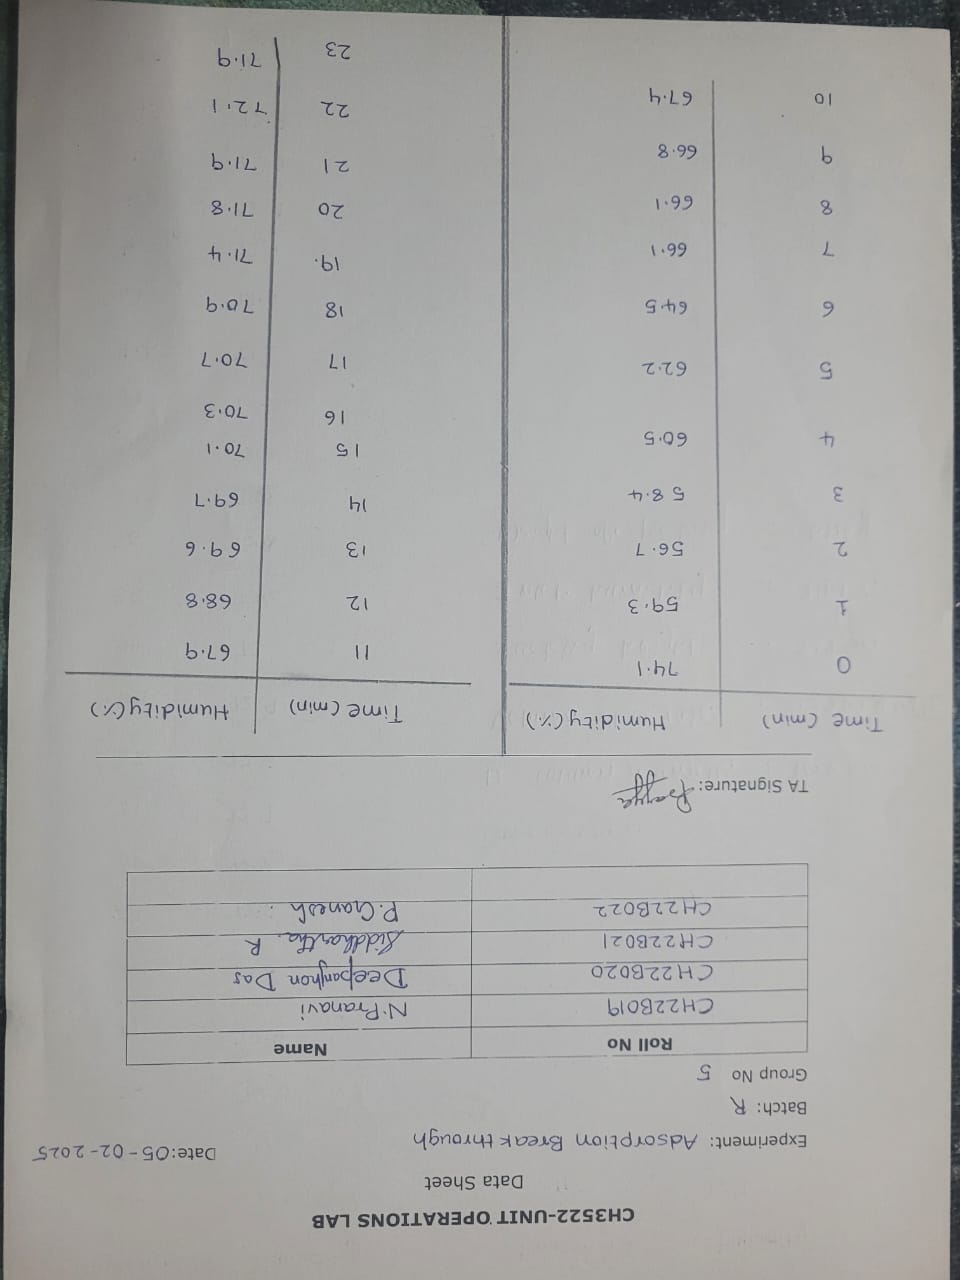 CH3522-UNIT OPERATIONS LAB
Data Sheet
Experiment: Adsorption Breakthrough
Date:05-02-2025
Batch: R
Group No 5
Roll No Name
CH22B019 N.Pranavi
CH22B020 Deepanjhon Das
CH22B021 Siddhartha R
CH22B022 P.Ganesh
TA Signature:
Time (min) Humidity (%)
0 74.1
1 59.3
2 56.7
3 58.4
4 60.5
5 62.2
6 64.5
7 66.1
8 66.1
9 66.8
10 67.4
Time (min) Humidity (%)
11 67.9
12 68.8
13 69.6
14 69.7
15 70.1
16 70.3
17 70.7
18 70.9
19. 71.4
20 71.8
21 71.9
22 72.1
23 71.9